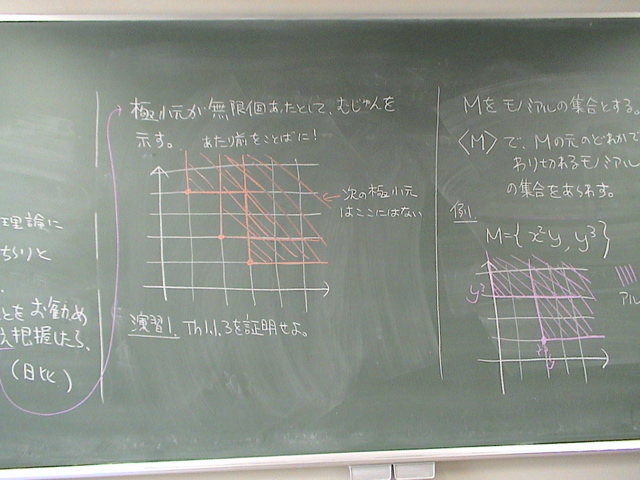 理論に
ちりと
とをお勧め
え把握したら、
(日比)
極小元が無限個あったとして、むじゅんを
示す。 あたり前をことばに!
次の極小元
はここにはない
演習1. Th1.1.3を証明せよ。
Mをモノミアルの集合とする。
〈M〉で、Mの元のどれかで
わり切れるモノミアル
の集合をあらわす。
例
M={x²y, y³}
y³
アル